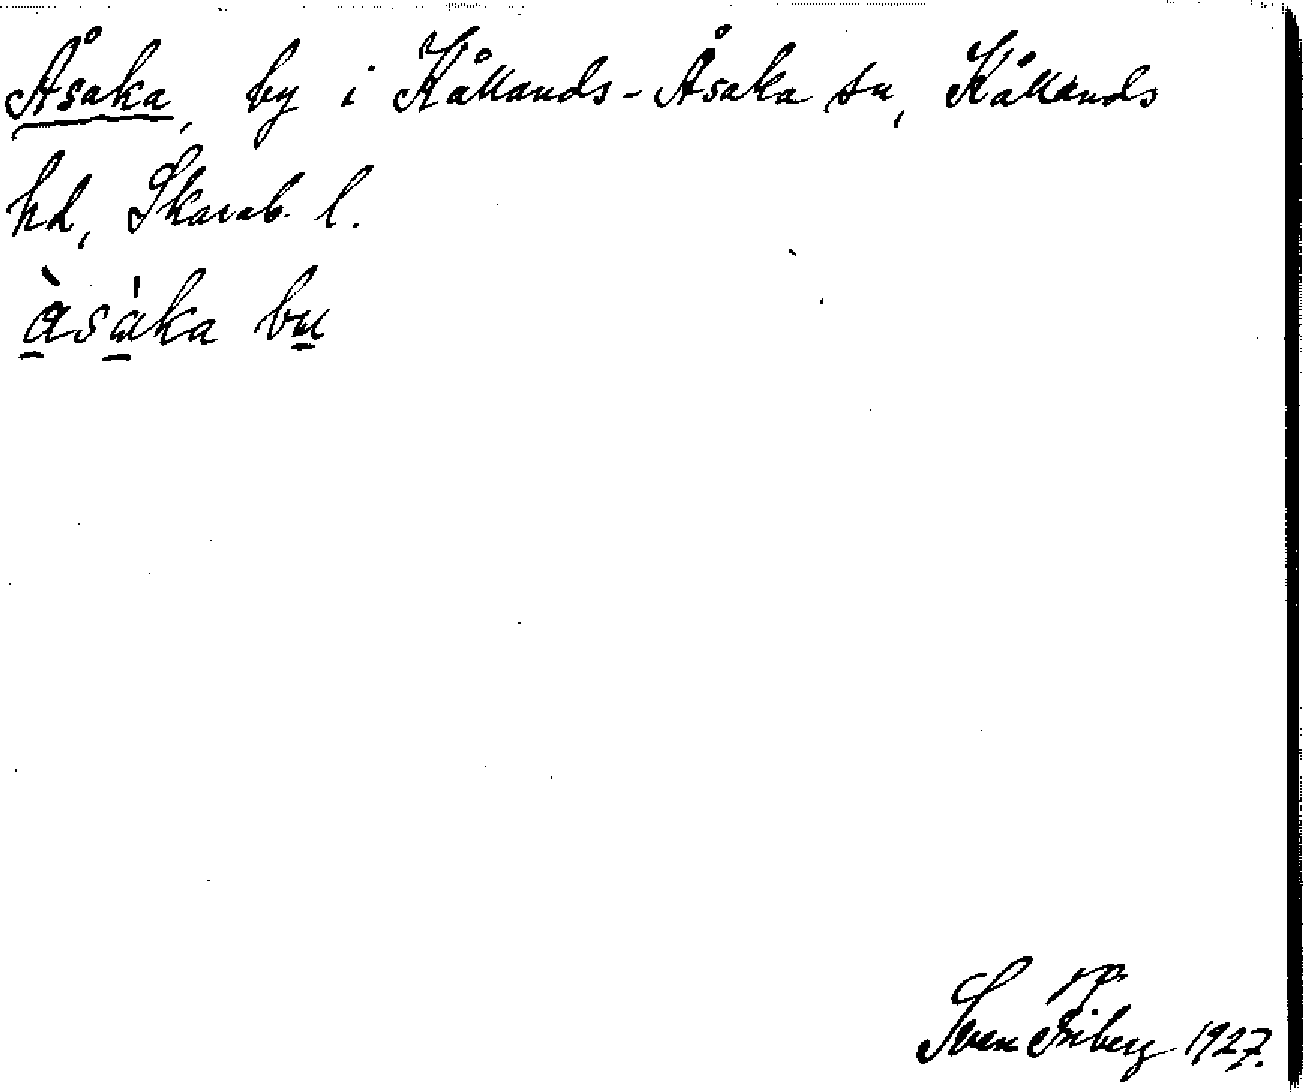 Åsaka, by i Kållands-Åsaka sn, Kållands
hd, Skarab. l.
àsáka bu
Sven Friberg 1927.